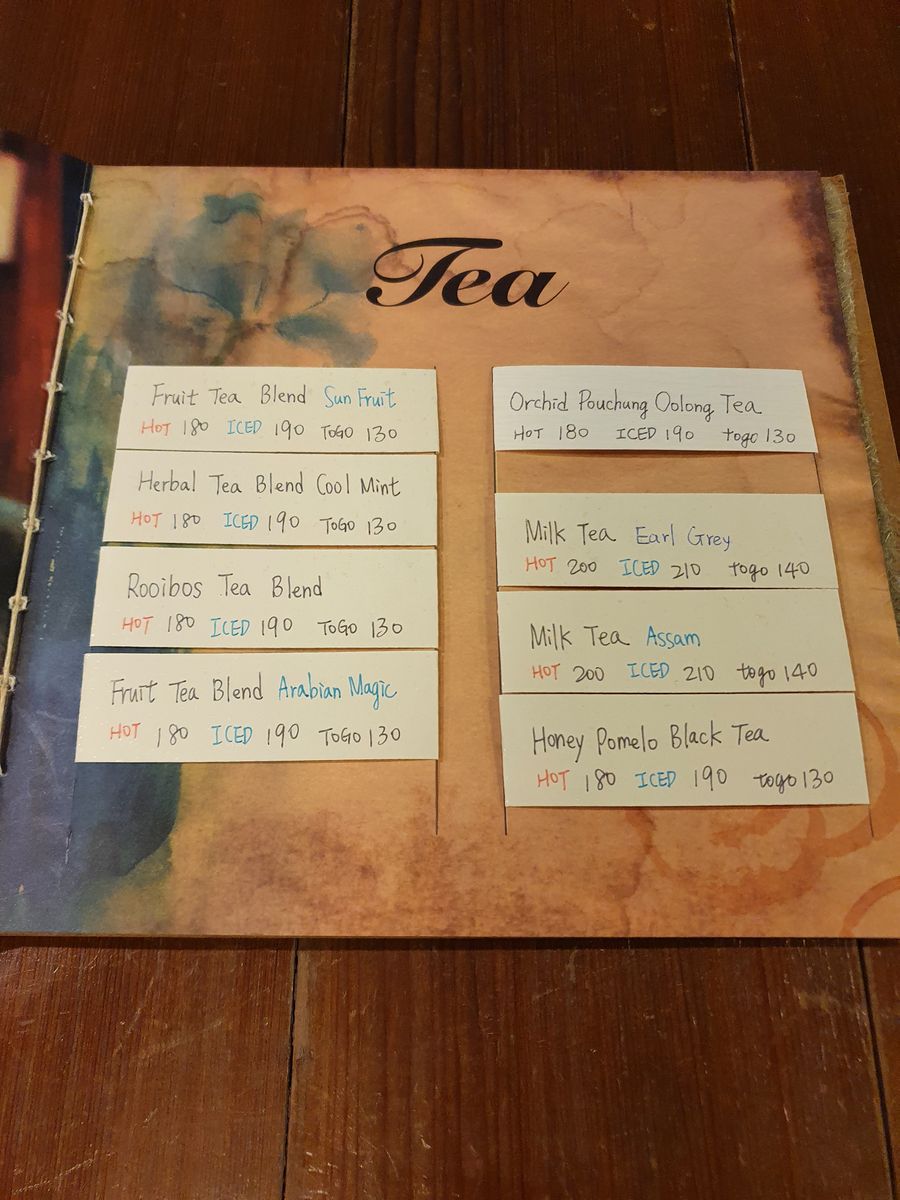 Tea
Fruit Tea Blend Sun Fruit
HOT 180 ICED 190 TOGO 130
Herbal Tea Blend Cool Mint
HOT 180 ICED 190 TOGO 130
Rooibos Tea Blend
HOT 180 ICED 190 TOGO 130
Fruit Tea Blend Arabian Magic
HOT 180 ICED 190 TOGO 130
Orchid Pouchung Oolong Tea
HOT 180 ICED 190 togo 130
Milk Tea Earl Grey
HOT 200 ICED 210 togo 140
Milk Tea Assam
HOT 200 ICED 210 togo 140
Honey Pomelo Black Tea
HOT 180 ICED 190 togo 130